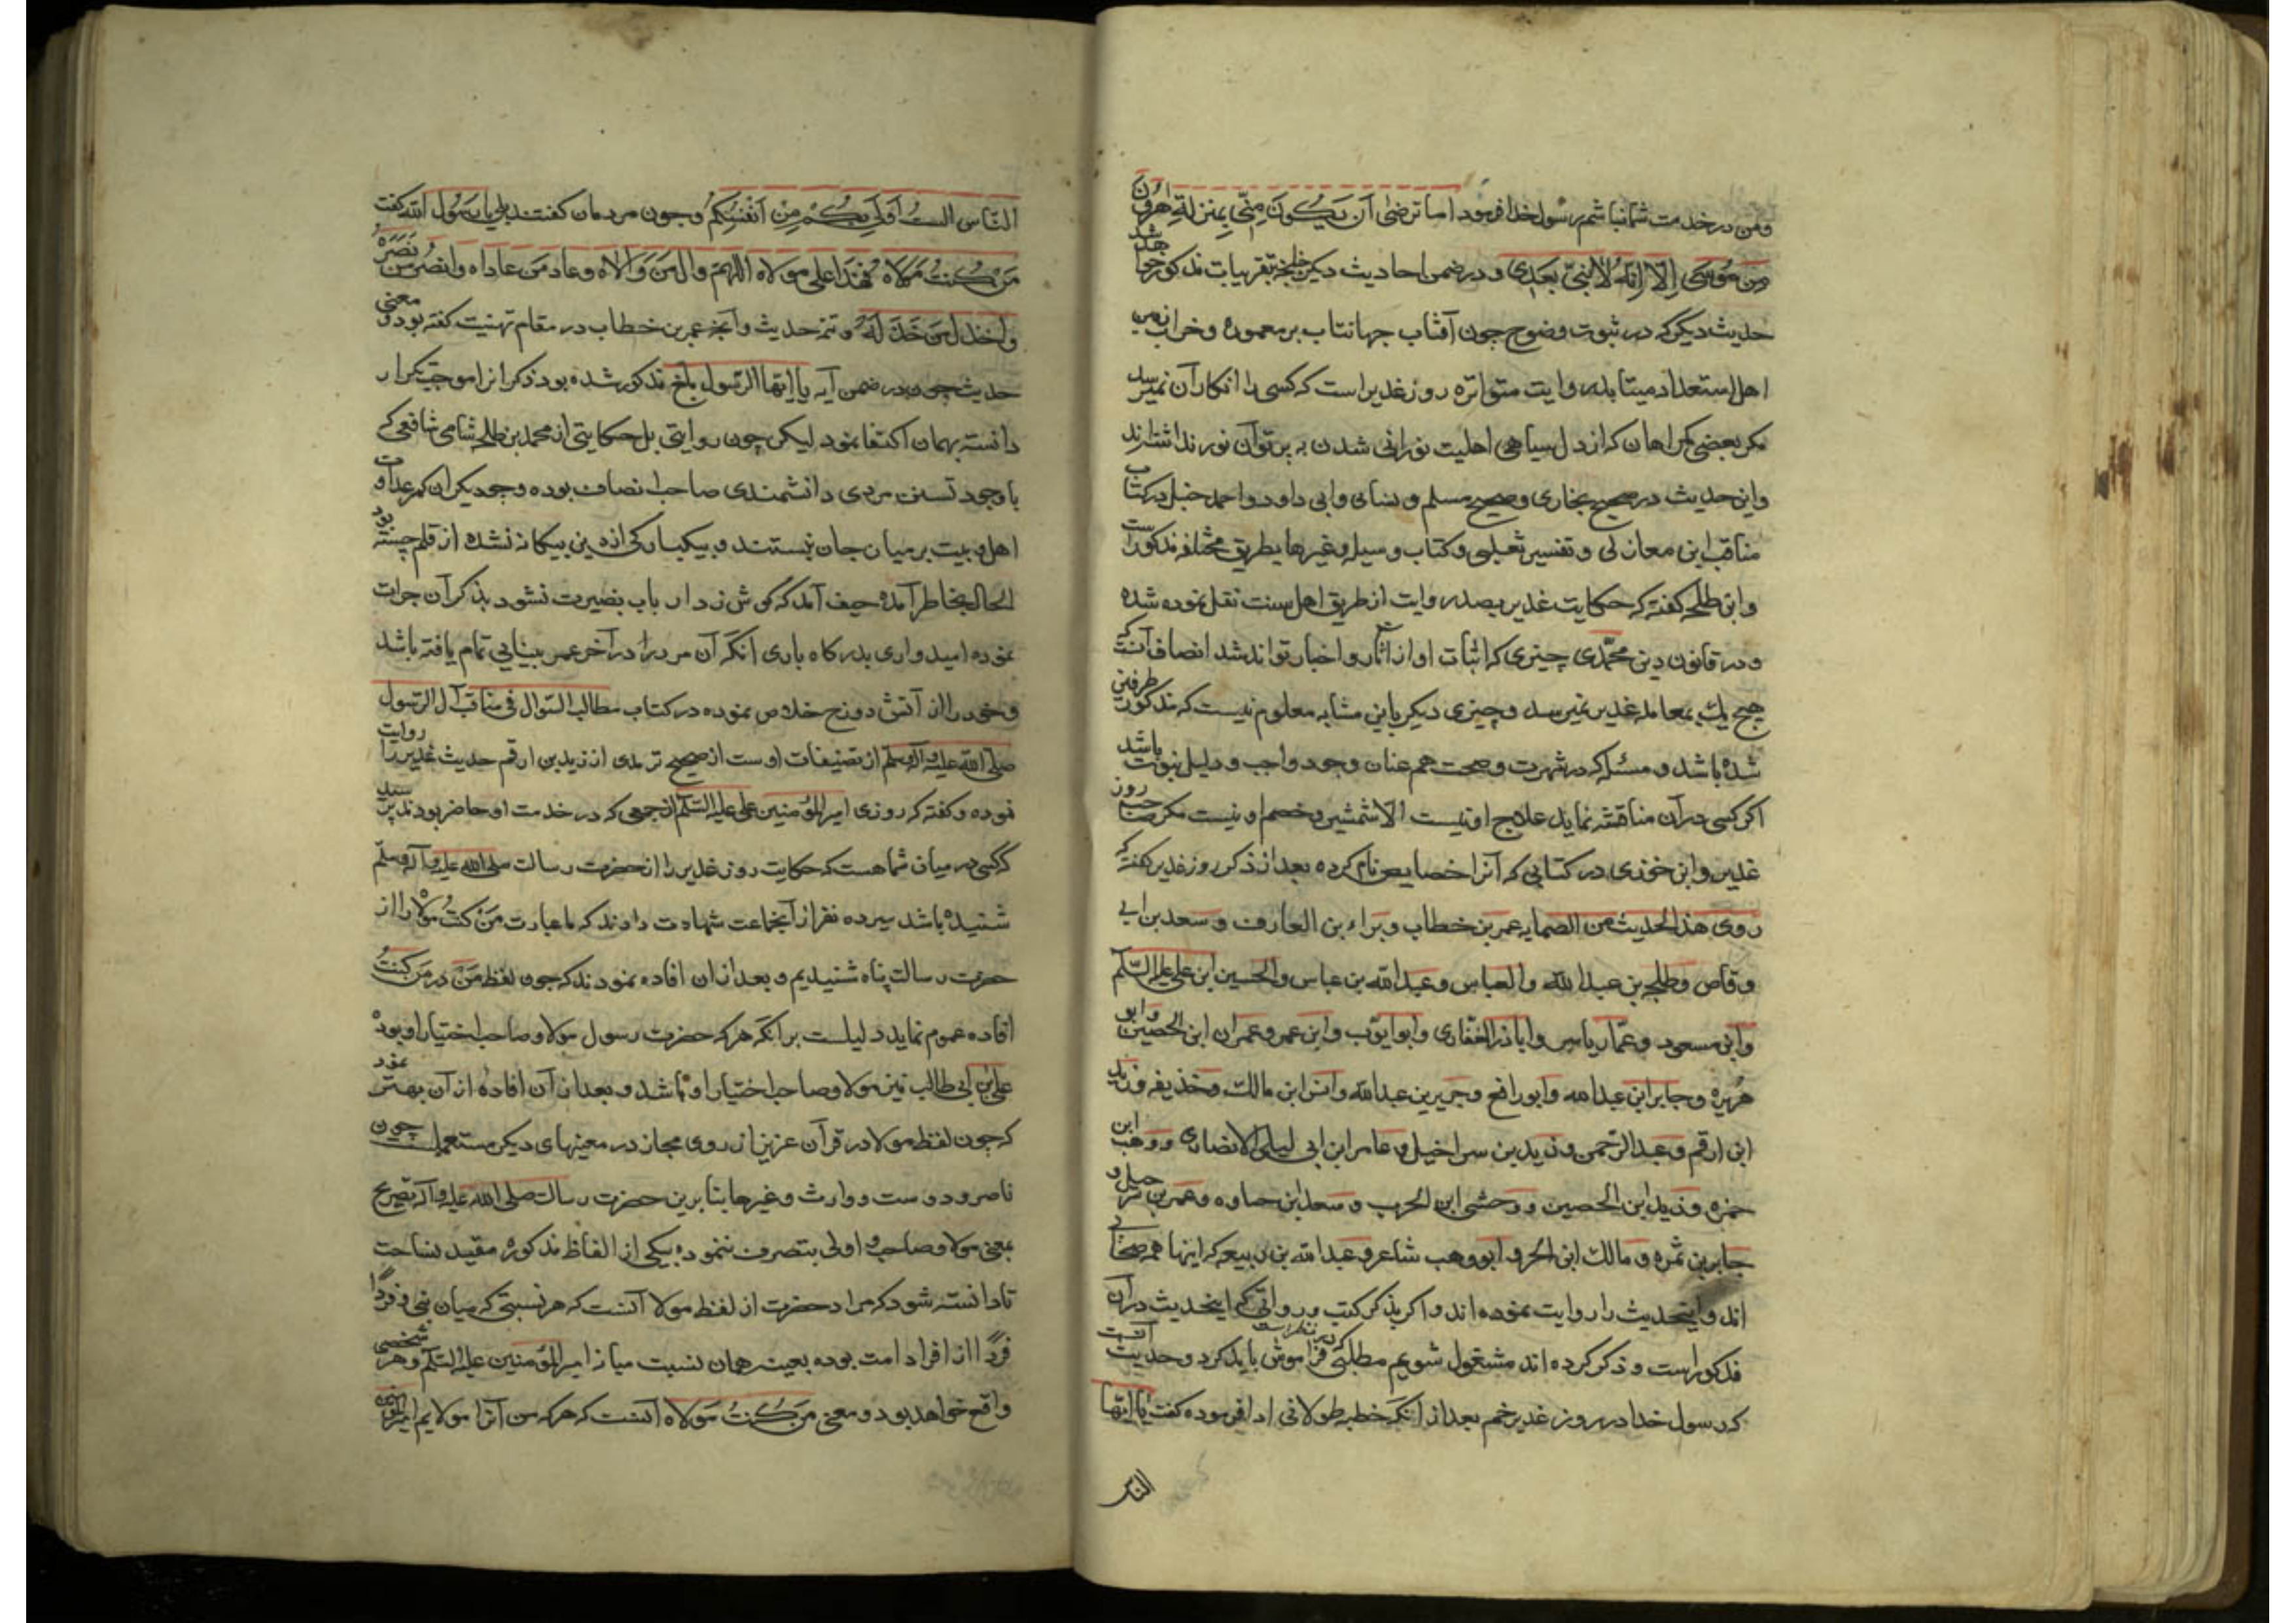 ومن در خدمت شما نباشم رسول خدا فرمود اما ترضی آن یکون منّی بمنزلة هرون
من موسی الّا انّه لا نبیّ بعدی و در ضمن احادیث دیکر تقریبات مذکور خواهد شد
حدیث دیکر که در ثبوت وضوح چون آفتاب جهانتاب بر معموره و خراب زمین
اهل استعداد میتابد روایت متواتره روز غدیر است که کسی را انکار آن نمیرسد
مکر بعضی کمراهان که از دل سیاهی اهلیت نورانی شدن به پرتو آن نور نداشته‌اند
واین حدیث در صحیح بخاری وصحیح مسلم ونسائی وابی داود واحمد حنبل در کتاب
مناقب ابن مغازلی و تفسیر ثعلبی وکتاب وسیله وغیرها بطریق مختلفه مذکور است
وابن طلحه کفته که حکایت غدیر بصد روایت از طریق اهل سنت نقل نموده شده
و در قانون دین محمّدی چیزی که اثبات او از آثار و اخبار تواند شد انصاف آنست که
هیچ یک بمعامله غدیر نمیرسد و چیزی دیکر باین مشابه معلوم نیست که مذکور طرفین
شده باشد و مسئله که در شهرت وصحت هم عنان وجود واجب و دلیل نبوت باشد
اکر کسی در آن مناقشه نماید علاج او نیست الّا شمشیر وخصم او نیست مکر صاحب روز
غدیر وابن خوزی در کتابی که آنرا خصایص نام کرده بعد از ذکر روز غدیر کفته که
روی هذا الحدیث من الصحابه عمر بن خطاب وبراء بن العازف و سعد بن ابی
وقاص وطلحه بن عبد الله والعباس وعبد الله بن عباس والحسین ابن علی علیه السّلم
وابن مسعود وعمّار یاسر واباذر الغفاری وابو ایوّب وابن عمر وعمران ابن الحصین وابو
هریره وجابر ابن عبد الله وابو رافع وجریر بن عبد الله وانس ابن مالک وحذیفه وزید
ابن ارقم وعبد الرّحمن وزید بن سراخیل وعامر ابن ابی لیلی الانصاری ووهب ابن
حمزه وزید ابن الحصین ووحشی ابن الحرب وسعد ابن حناوه وعمر بن شرحبیل و
جابر بن ثمره و مالک ابن الحر و ابو وهب شاعر وعبد الله بن ربیعه که اینها همه صحابی
اند واینحدیث را روایت نموده اند و اکر بذکر کتب و رواتی که اینحدیث در آن
مذکور است وذکر کرده اند مشغول شویم مطلبی که در نظر است فراموش باید کرد وحدیث آنست
که رسول خدا در روز غدیر خم بعد از آنکه خطبه طولانی ادا فرموده کفت یا ایّها
الناس
النّاس الست اولی بکم من انفسکم وچون مردمان کفتند بلی یا رسول الله کفت
من کنت مولاه فهذا علی مولاه اللهم وال من والاه وعاد من عاداه وانصر من نصره
واخذل من خذله و تتمه حدیث وآنچه عمر بن خطاب در مقام تهنیت کفته بود ومعنی
حدیث چون در ضمن آیه یا ایّها الرّسول بلّغ مذکور شده بود ذکر انرا موجب تکرار
دانسته بهمان اکتفا نمود لیکن چون روایتی بل حکایتی از محمد بن طلحه شامی شافعی که
با وجود تسنن مردی دانشمندی صاحب انصاف بوده وچو دیکران کمر عداوت
اهل بیت بر میان جان نبسته و بیکبارکی از دین بیکانه نشده از قلم جسته بود
الحال بخاطر آمده حیف آمد که کوش زد ارباب بصیرت نشود بذکر آن جرات
نموده امیدواری بدرکاه باری انکه آن مرد را در آخر عمر بینایی تمام یافته باشد
وخود را از آتش دوزخ خلاص نموده در کتاب مطالب السّوال فی مناقب آل الرّسول
صلّی الله علیه وآله وسلّم از تصنیفات اوست از صحیح ترمدی از زید بن ارقم حدیث غدیر را روایت
نموده وکفته که روزی امیر المؤمنین علی علیه السّلم از جمعی که در خدمت او حاضر بودند پرسید
که کسی در میان شما هست که حکایت روز غدیر را از حضرت رسالت صلی الله علیه وآله وسلّم
شنیده باشد سیرده نفر از آنجماعت شهادت دادند که ما عبارت من کنت مولاه را از
حضرت رسالت پناه شنیدیم و بعد از ان افاده نمودند که چون لفظ من در من کنت
افاده عموم نماید دلیلست بر انکه هر که حضرت رسول مولا وصاحب اختیار او بوده
علی بن ابی طالب نیز مولا وصاحب اختیار او باشد و بعد از آن افاده از آن بهتر نمود
که چون لفظ مولا در قرآن عزیز از روی مجاز در معنیهای دیکر مستعملست چون
ناصر ودوست ووارث وغیرها بنا برین حضرت رسالت صلی الله علیه وآله تصریح
بمعنی مولا وصاحب و اولی بتصرف ننموده بیکی از الفاظ مذکوره مقید نساخت
تا دانسته شود که مراد حضرت از لفظ مولا آنست که هر نسبتی که میان نبی و فردًا
فردًا از افراد امت بوده بعینه همان نسبت میانه امیر المؤمنین علیه السّلم وهر شخصی
واقع خواهد بود و معنی من کنت مولاه آنست که هر که من آنرا مولایم امیر المؤمنین